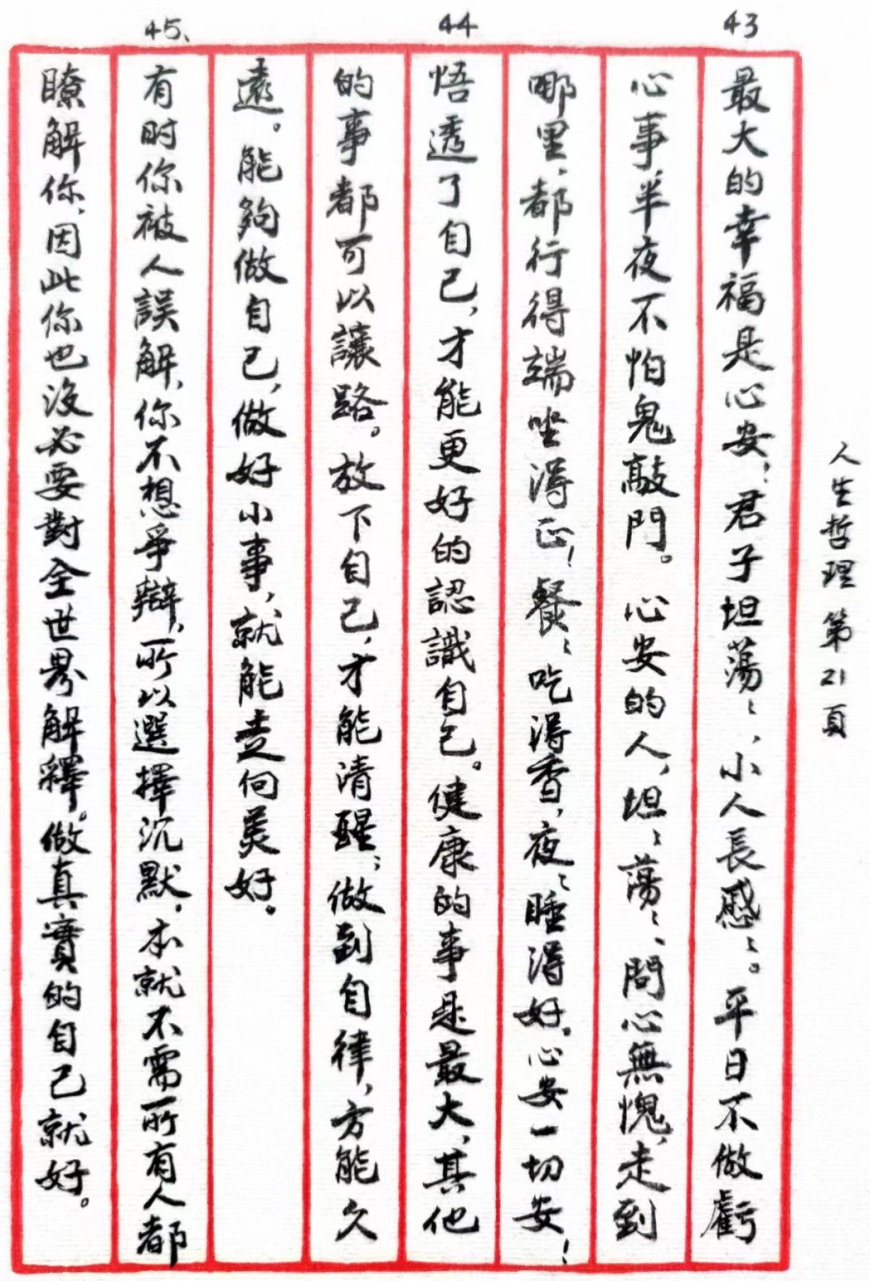 人生哲理第21頁
43
最大的幸福是心安!君子坦蕩〻,小人長慼〻。平日不做虧
心事,半夜不怕鬼敲門。心安的人,坦〻蕩〻,問心無愧,走到
哪里,都行得端坐得正!餐〻吃得香,夜〻睡得好。心安一切安!
44
悟透了自己,才能更好的認識自己。健康的事是最大,其他
的事都可以讓路。放下自己,才能清醒;做到自律,方能久
遠。能夠做自己,做好小事,就能走向美好。
45、
有时你被人誤解,你不想爭辯,所以選擇沉默,本就不需所有人都
瞭解你,因此你也沒必要對全世界解釋。做真實的自己就好。